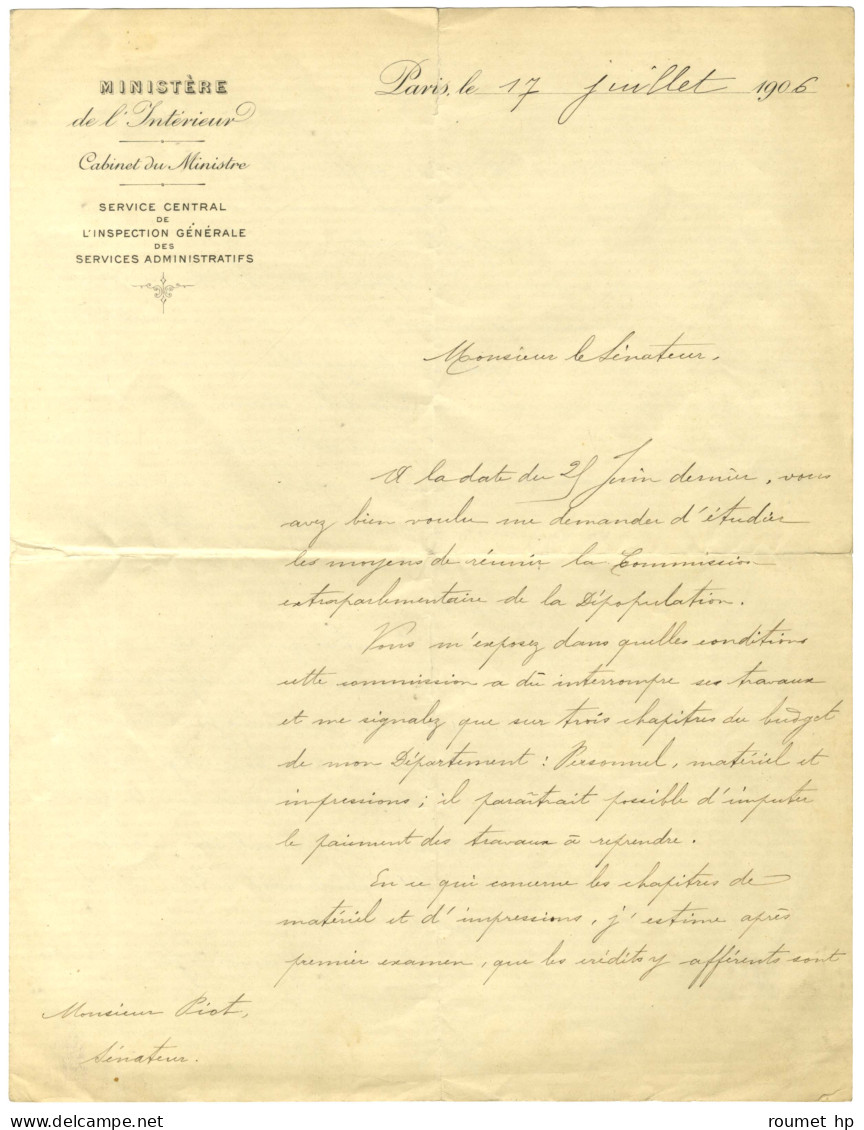 MINISTÈRE
de l'Intérieur
Cabinet du Ministre
SERVICE CENTRAL
DE
L'INSPECTION GÉNÉRALE
DES
SERVICES ADMINISTRATIFS
Paris, le 17 juillet 1906
Monsieur le Sénateur,
A la date du 25 Juin dernier, vous
avez bien voulu me demander d'étudier
les moyens de réunir la Commission
extraparlementaire de la Dépopulation.
Vous m'exposez dans quelles conditions
cette commission a dû interrompre ses travaux
et me signalez que sur trois chapitres du budget
de mon Département : Personnel, matériel et
impressions ; il paraîtrait possible d'imputer
le paiement des travaux à reprendre.
En ce qui concerne les chapitres de
matériel et d'impressions, j'estime après
premier examen, que les crédits y afférents sont
Monsieur Piot,
Sénateur.
www.delcampe.net
roumet hp